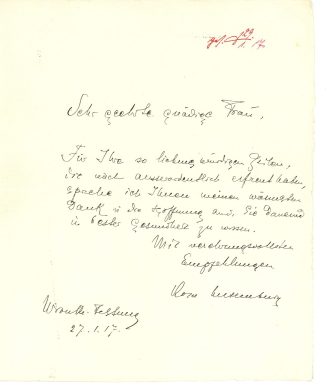 29/1. 17.
Sehr geehrte gnädige Frau,
Für Ihre so liebenswürdigen Zeilen,
die mich ausserordentlich erfreut haben,
spreche ich Ihnen meinen wärmsten
Dank u die Hoffnung aus, Sie dauernd
in bester Gesundheit zu wissen.
Mit verehrungsvollsten
Empfehlungen
Rosa Luxemburg
Wronke-Festung
27.1.17.